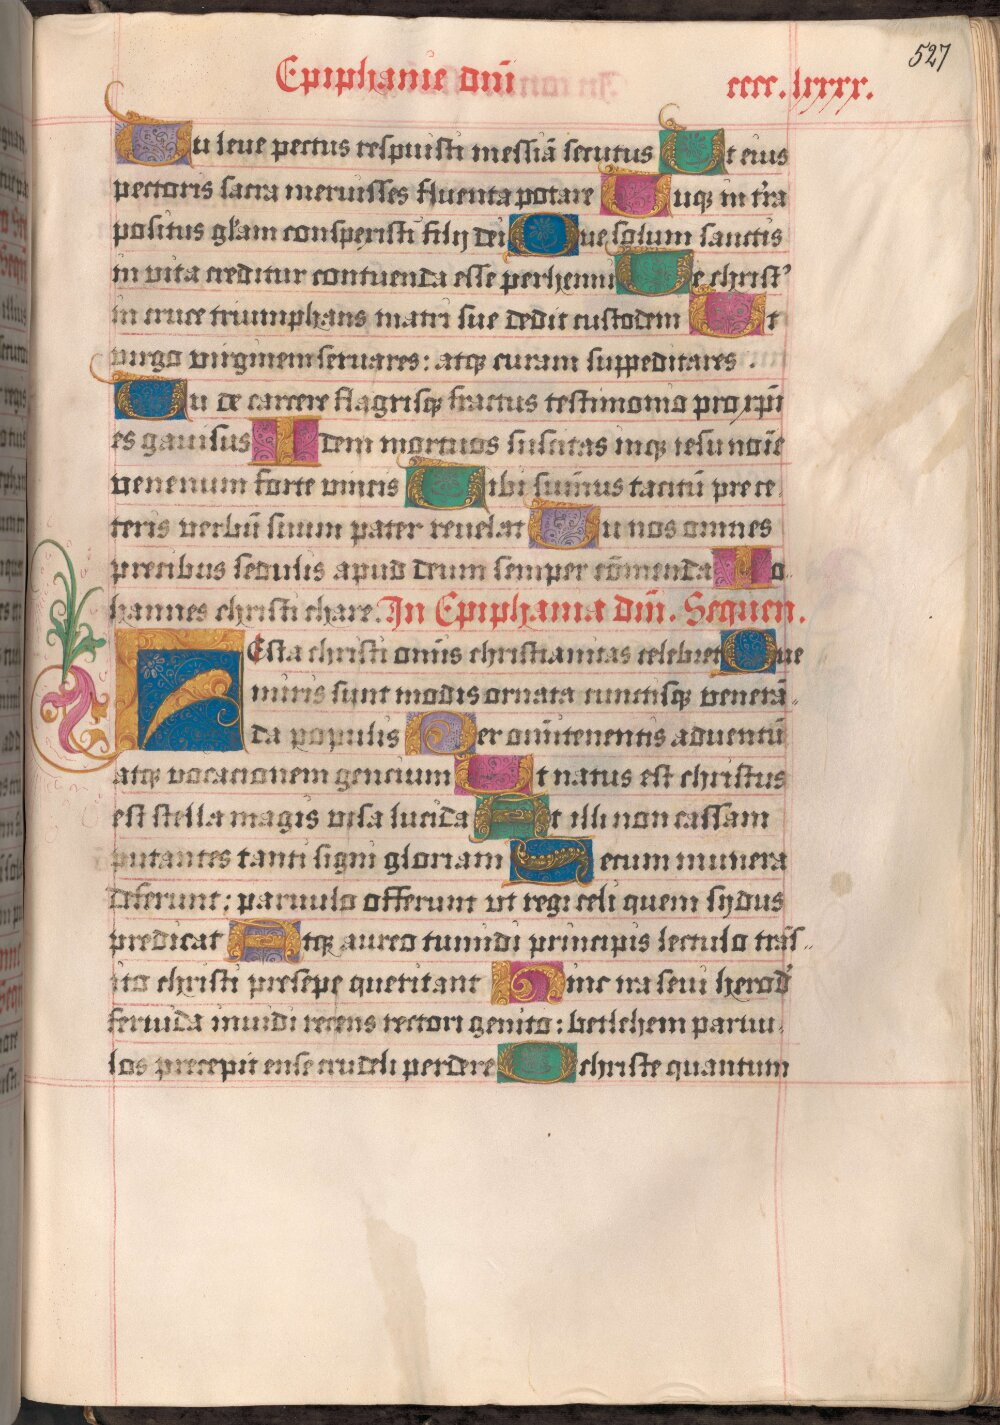 527
Epiphanie dnī
cccc.lxxxx.
Tu leue pectus respuisti messiā secutus Ut eius
pectoris sacra meruisses fluenta potare Tuq; in tr̄a
positus gl̄am conspexisti filij dei Que solum sanctis
in vita creditur contuenda esse perhenni Te christ'
in cruce triumphans matri sue dedit custodem Ut
virgo virginem seruares: atq; curam suppeditares.
Tu de carcere flagrisq; fractus testimonio pro xp̄i
es gauisus Idem mortuos suscitas inq; iesu noīe
venenum forte vincis Tibi sum̄us tacitū pre ce
teris verbū suum pater reuelat Tu nos omnes
precibus sedulis apud deum semper cōmenda Io
hannes christi chare. In Epiphania dnī. Sequen.
FEsta christi omīs christianitas celebret Que
miris sunt modis ornata cunctisq; venerā-
da populis Per omītenentis aduentū
atq; vocacionem gencium Ut natus est christus
est stella magis visa lucida At illi non cassam
putantes tanti signi gloriam Secum munera
deferunt: paruulo offerunt vt regi celi quem sydus
predicat Atq; aureo tumidi principis lectulo trāſ-
ito christi presepe queritant Hinc ira seui herod'
feruida inuidi recens rectori genito: betlehem paruu
los precepit ense crudeli perdere O christe quantum